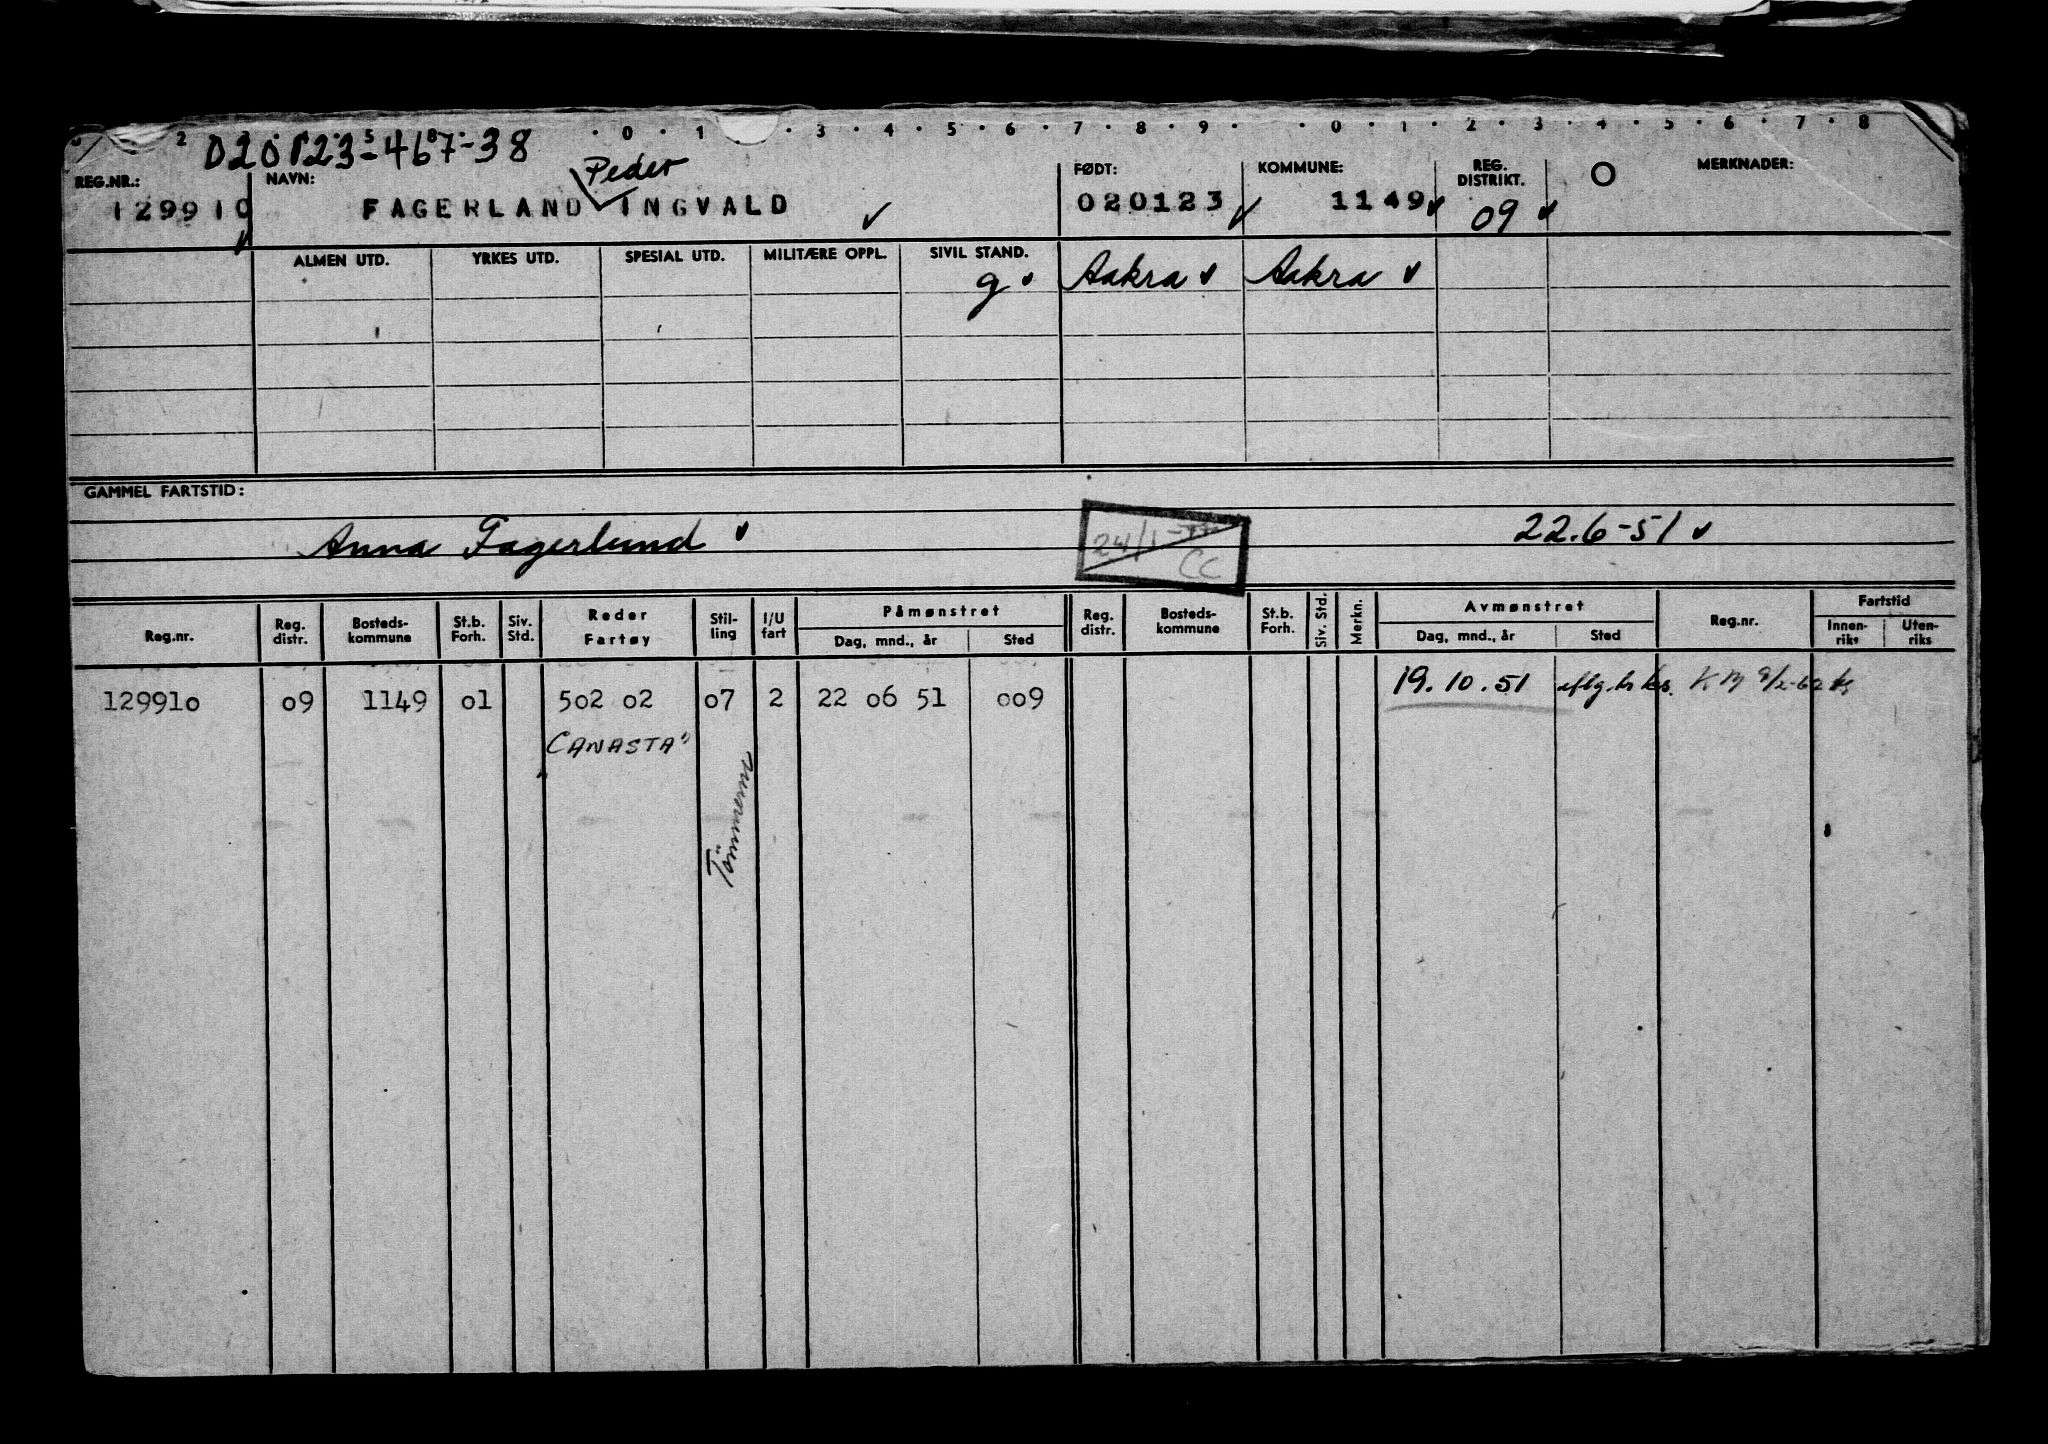 2 · 5 · 8 · 0 · 1 · 3 · 4 · 5 · 6 · 7 · 8 · 9 · 0 · 1 · 2 · 3 · 4 · 5 · 6 · 7 · 8
020123-467-38
Peder
REG.NR.: NAVN: FØDT: KOMMUNE: REG. DISTRIKT. O MERKNADER:
129910 FAGERLAND INGVALD 020123 1149 09
ALMEN UTD. YRKES UTD. SPESIAL UTD. MILITÆRE OPPL. SIVIL STAND.
g Aakra Aakra
GAMMEL FARTSTID:
Anna Fagerlund 22.6-51
24/1
CC
Reg.nr. Reg. distr. Bosteds-kommune St.b. Forh. Siv. Std. Reder Fartøy Stil-ling I/U fart Påmønstret Dag, mnd., år Sted Reg. distr. Bosteds-kommune St.b. Forh. Siv. Std. Merkn. Avmønstret Dag, mnd., år Sted Reg.nr. Fartstid Innen-riks Uten-riks
129910 09 1149 01 502 02 07 2 22 06 51 009 19.10.51
CANASTA"
Tömmerm